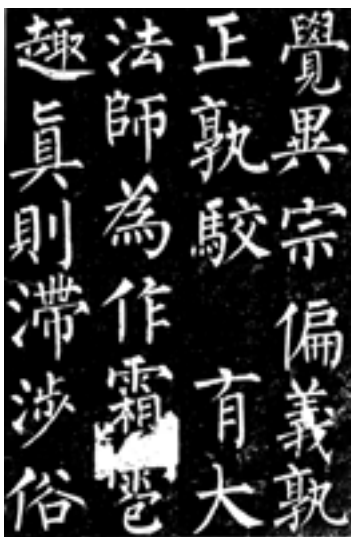 覺異宗偏義孰
正孰駮有大
法師為作霜雹
趣眞則滯涉俗